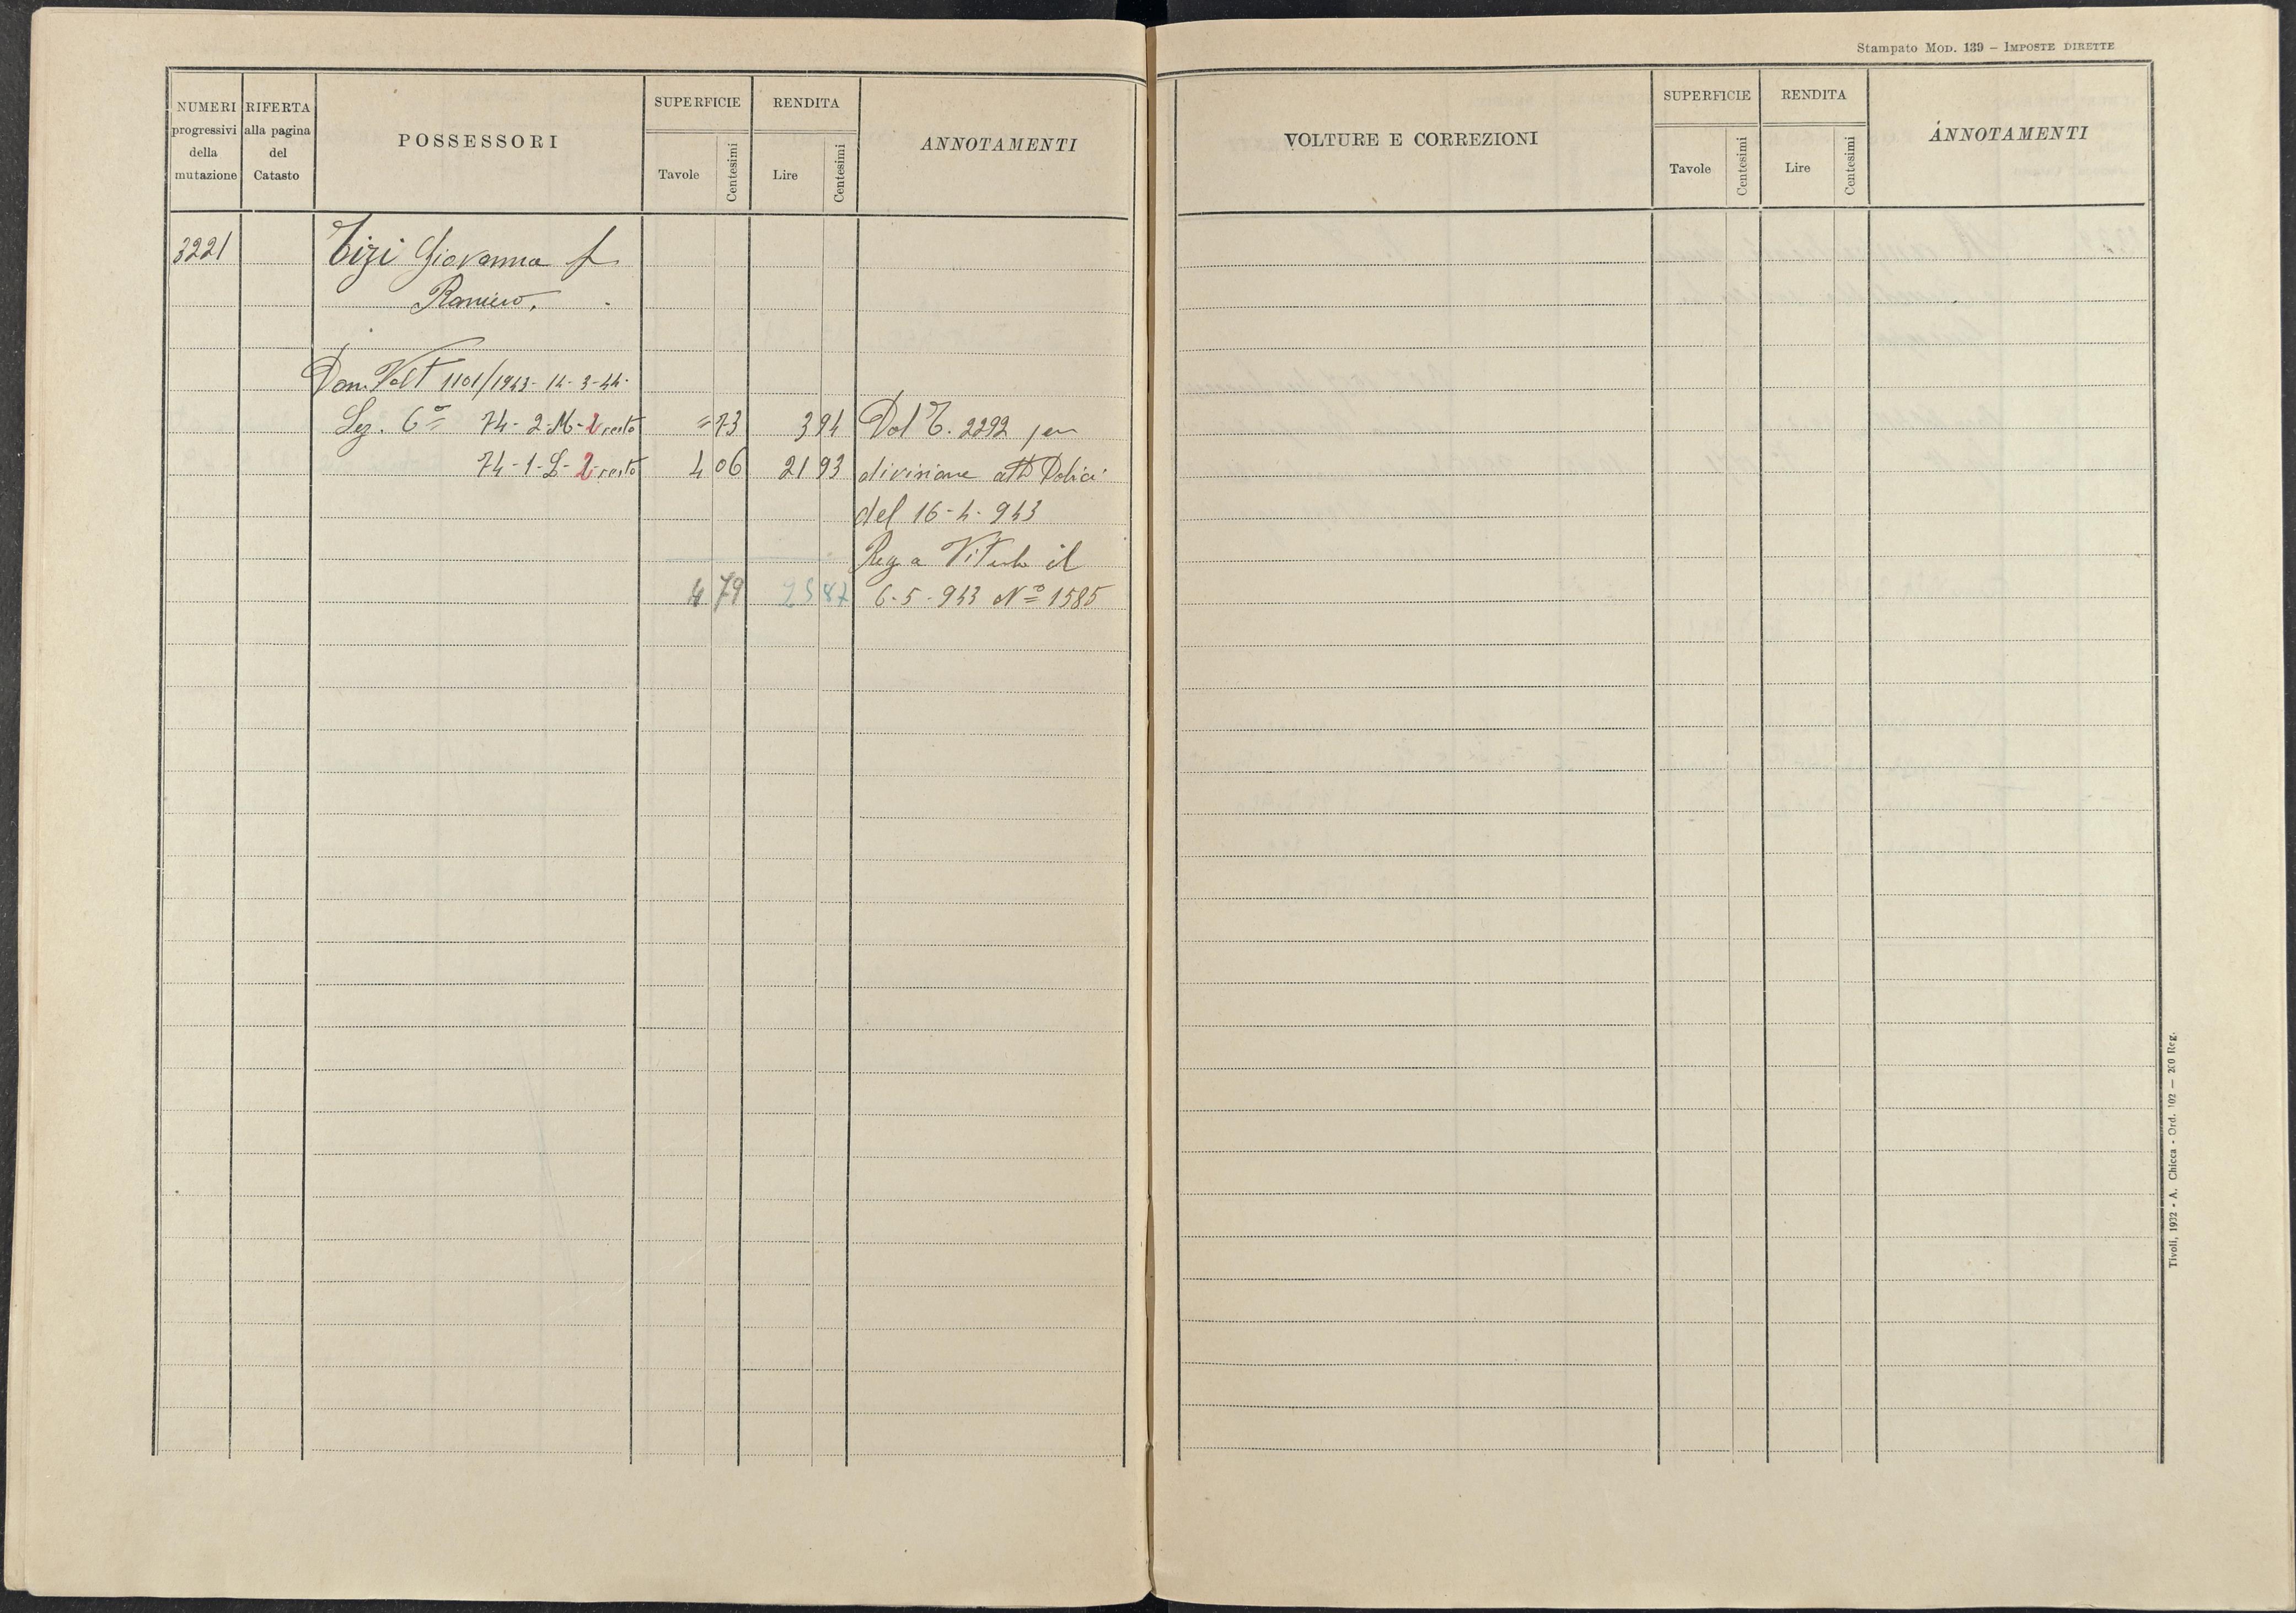 Stampato Mod. 139 — Imposte dirette
NUMERI progressivi della mutazione
RIFERTA alla pagina del Catasto
POSSESSORI
SUPERFICIE
Tavole
Centesimi
RENDITA
Lire
Centesimi
ANNOTAMENTI
VOLTURE E CORREZIONI
SUPERFICIE
Tavole
Centesimi
RENDITA
Lire
Centesimi
ANNOTAMENTI
3221 Tizi Giovanna f
Raniero.
Dom. Volt 1101/1943 - 14-3-44.
Sez. 6ª 74-2-M-2 resto = 73 3 94 Dal T. 2292 per
74-1-L-2 resto 4 06 21 93 divisione atto Dolici
del 16-4-943
Reg a Viterbo il
4 79 25 87 6-5-943 Nº 1585
Tivoli, 1932 - A. Chicca - Ord. 102 — 200 Reg.